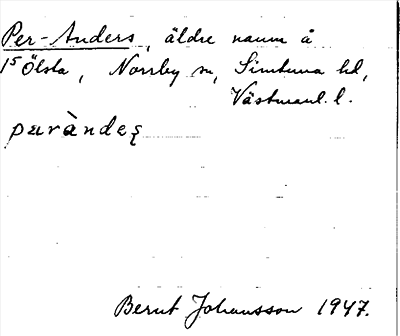 Per-Anders, äldre namn å
1⁵ Ölsta, Norrby sn, Simtuna hd,
Västmanl. l.
pæràndeʂ
Bernt Johansson 1947.